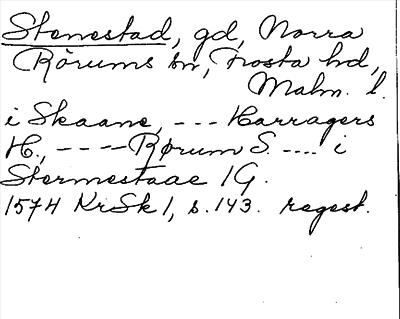 Stenestad, gd, Norra
Rörums sn, Frosta hd,
Malm. l.
i Skaane, --- Harragers
H., ---- Rørum S. .... i
Stermestaae 1 G.
1574 KrSk 1, s. 143. regest.